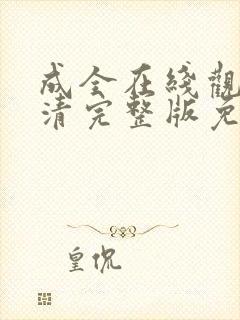 成全在綫觀
清完整版免
皇侃